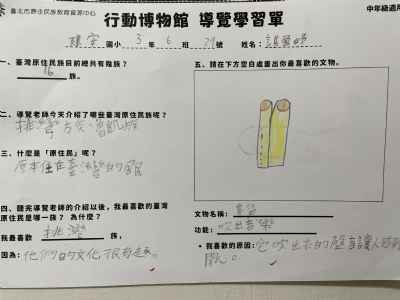 臺北市原住民族教育資源中心
行動博物館 導覽學習單
中年級適用
國小 3 年 6 班 29 號 姓名：
一、臺灣原住民族目前總共有幾族？
16 族。
二、導覽老師今天介紹了哪些臺灣原住民族呢？
三、什麼是「原住民」呢？
原本住在臺灣的
四、聽完導覽老師的介紹以後，我最喜歡的臺灣
原住民是哪一族？ 為什麼？
我最喜歡 排灣 族，
因為：他們的文化很有趣。
五、請在下方空白處畫出你最喜歡的文物。
文物名稱：
功能：吹出音樂
• 我喜歡的原因：它吹出來的聲音讓人感到